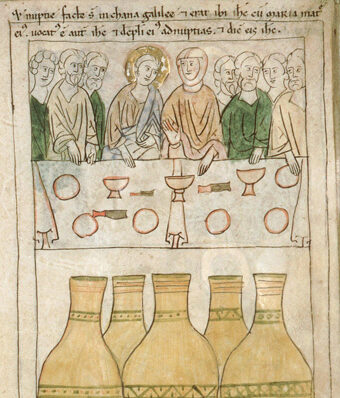 Nuptie facte s̄ in chana galilee ⁊ erat ibi ihc̄ cū maria mat̄
ei᾽. uocat᾽ ē aut̄ ihc̄ ⁊ dcīpli ei᾽ ad nuptias. ⁊ dic̄ eis ihc̄.